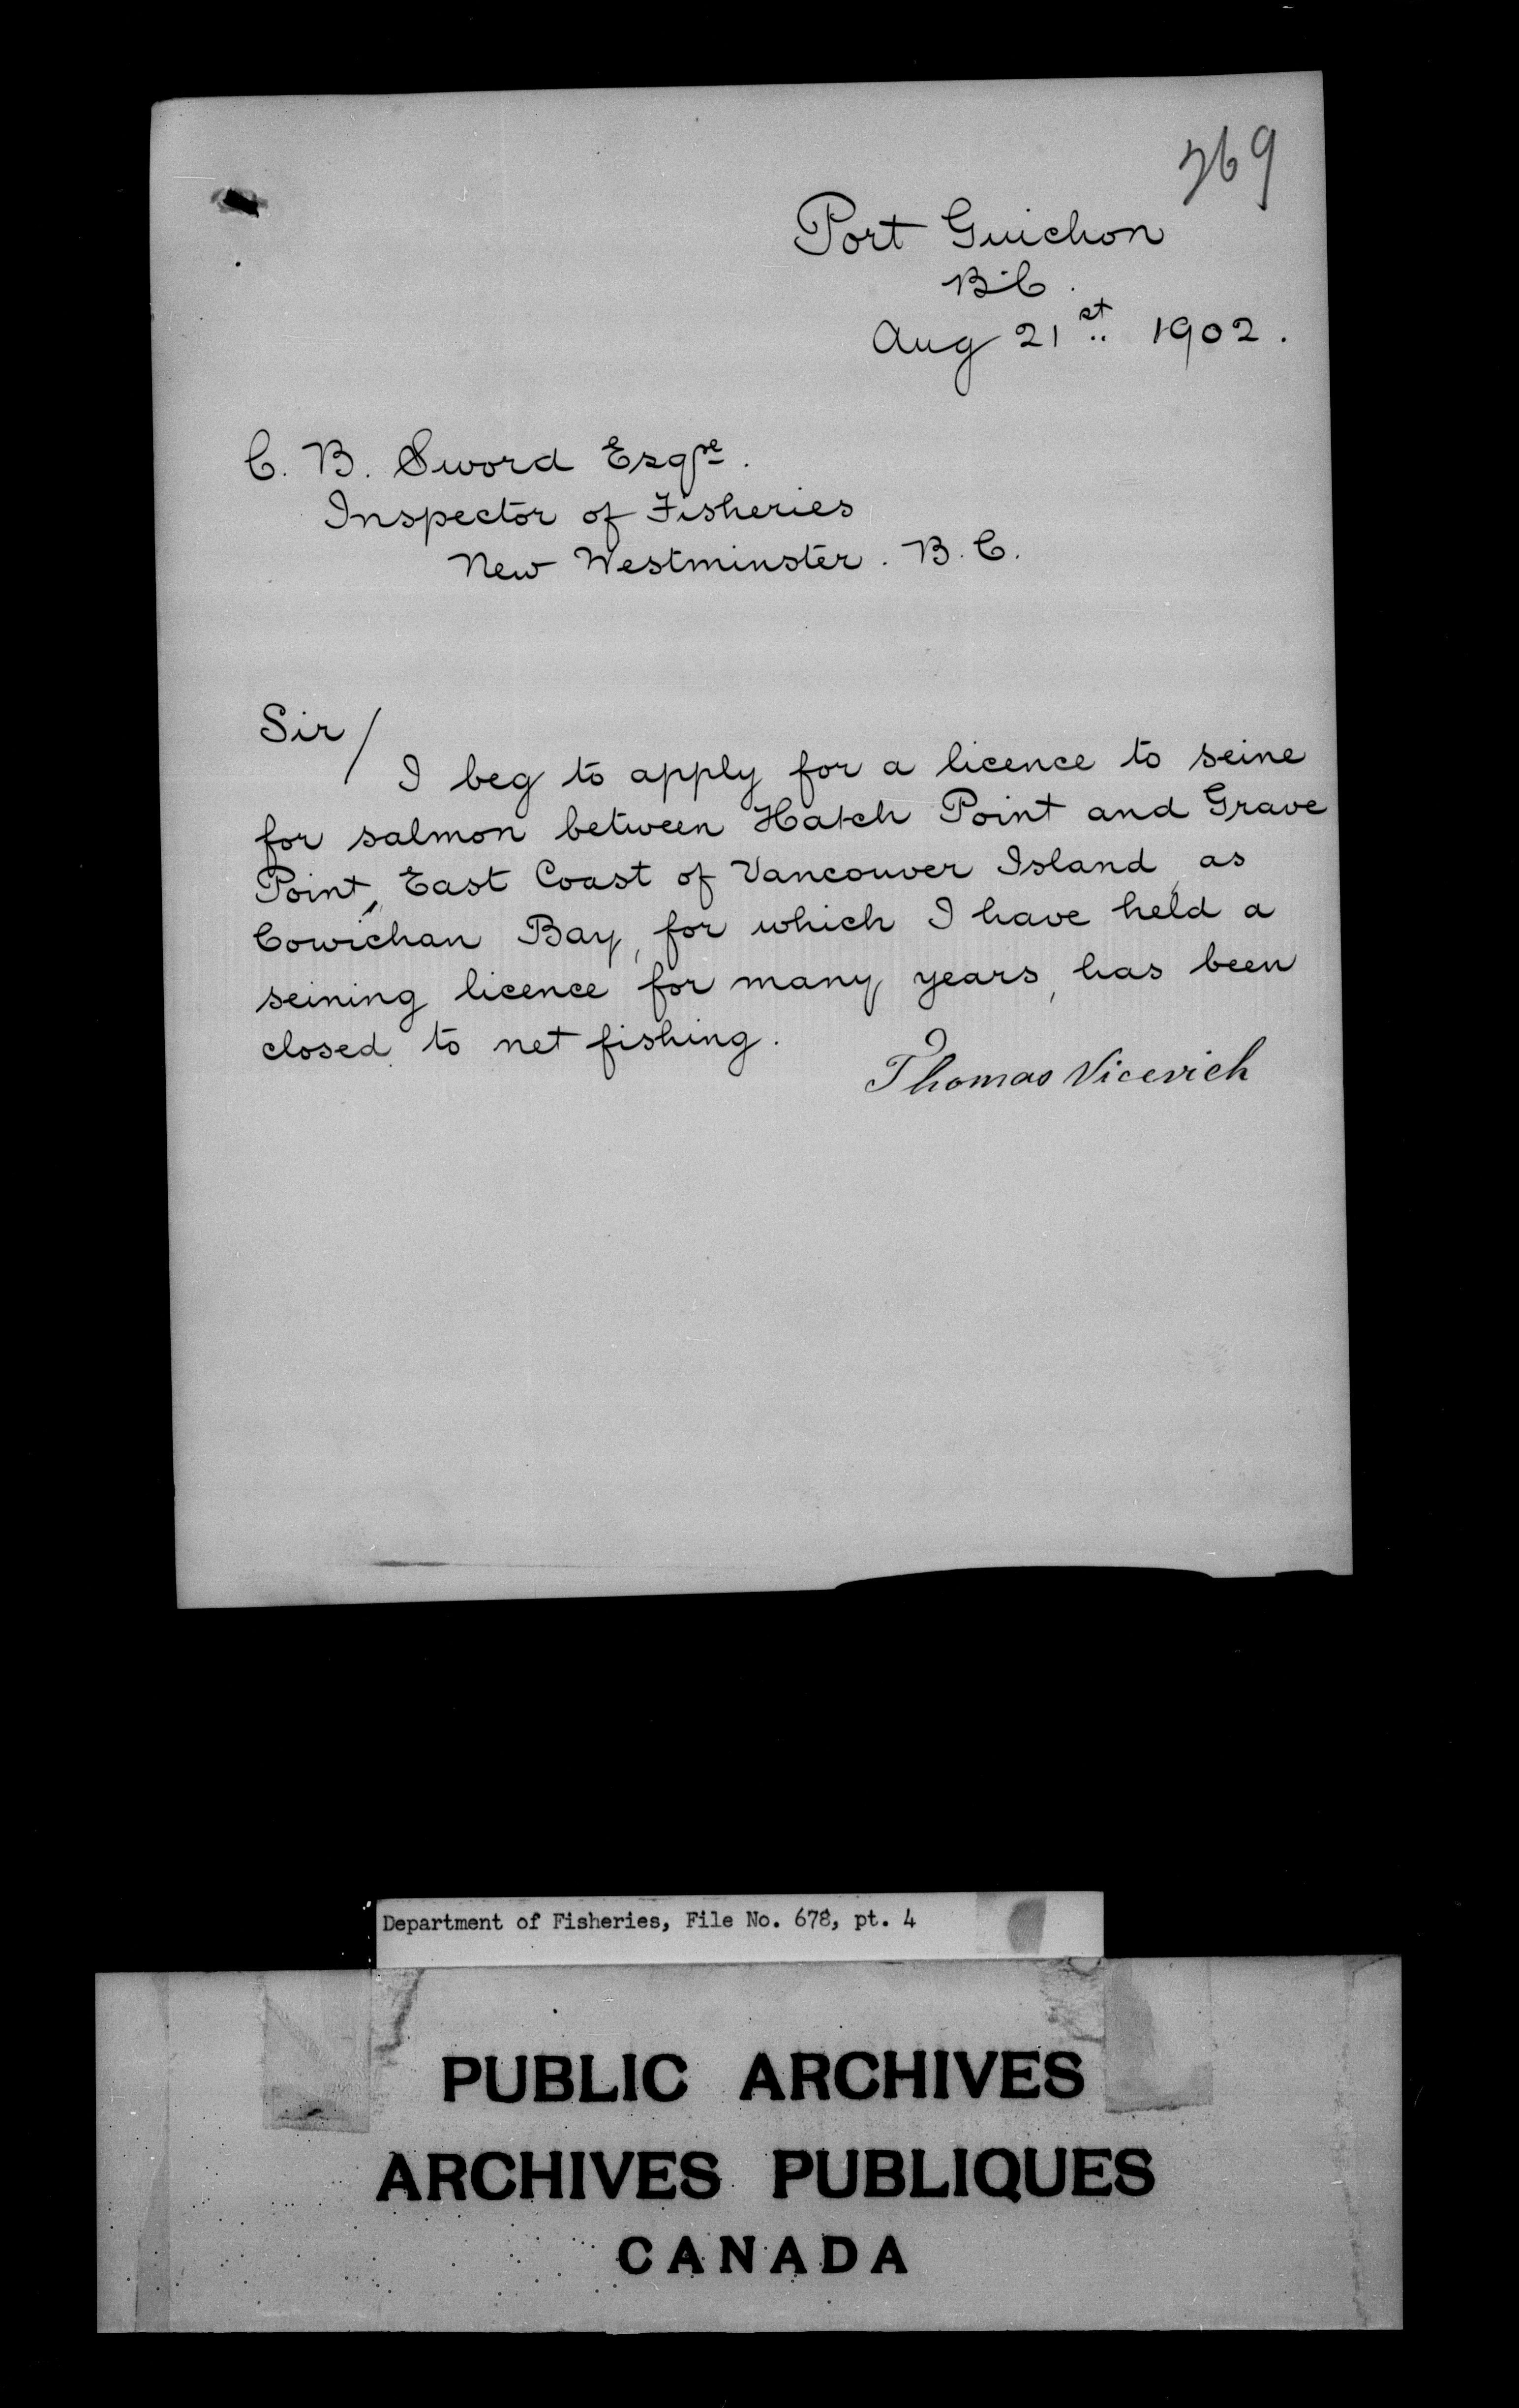 269
Port Guichon
B.C.
Aug 21st 1902.
C. B. Sword Esqre.
Inspector of Fisheries
New Westminster. B.C.
Sir/
I beg to apply for a licence to seine
for salmon between Hatch Point and Grave
Point, East Coast of Vancouver Island, as
Cowichan Bay, for which I have held a
seining licence for many years, has been
closed to net fishing.
Thomas Vicevich
Department of Fisheries, File No. 678, pt. 4
PUBLIC ARCHIVES
ARCHIVES PUBLIQUES
CANADA